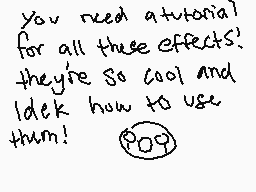 you need a tutorial
for all these effects!
they're so cool and
Idek how to use
them!